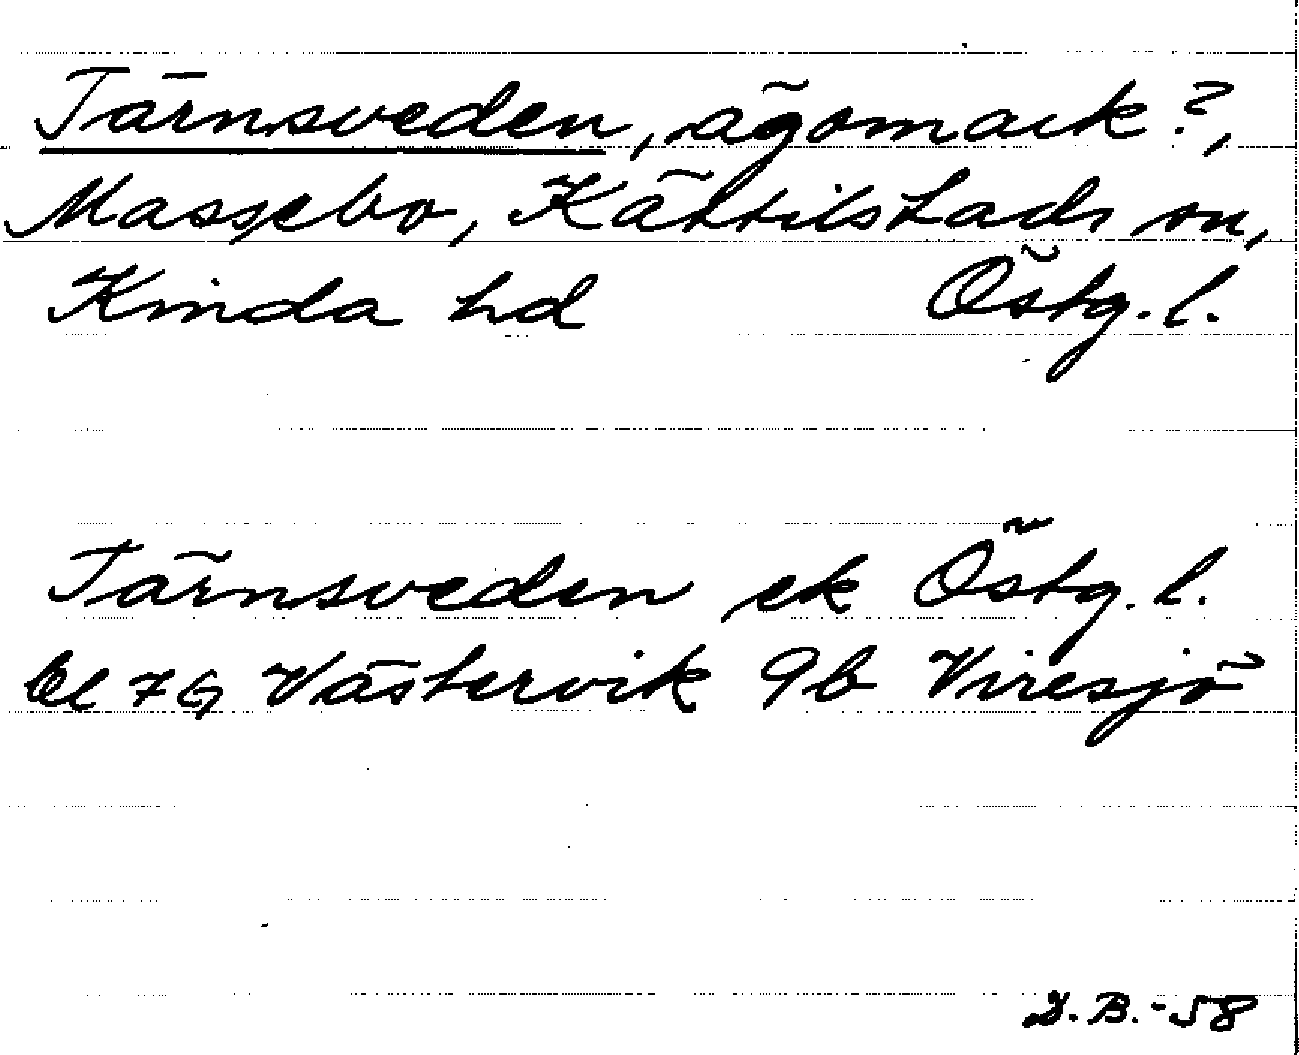 Tärnsveden, ägomark?,
Massebo, Kättilstads sn,
Kinda hd Östg. l.
Tärnsveden ek Östg. l.
bl 7G Västervik 9b Viresjö
G. B. -58